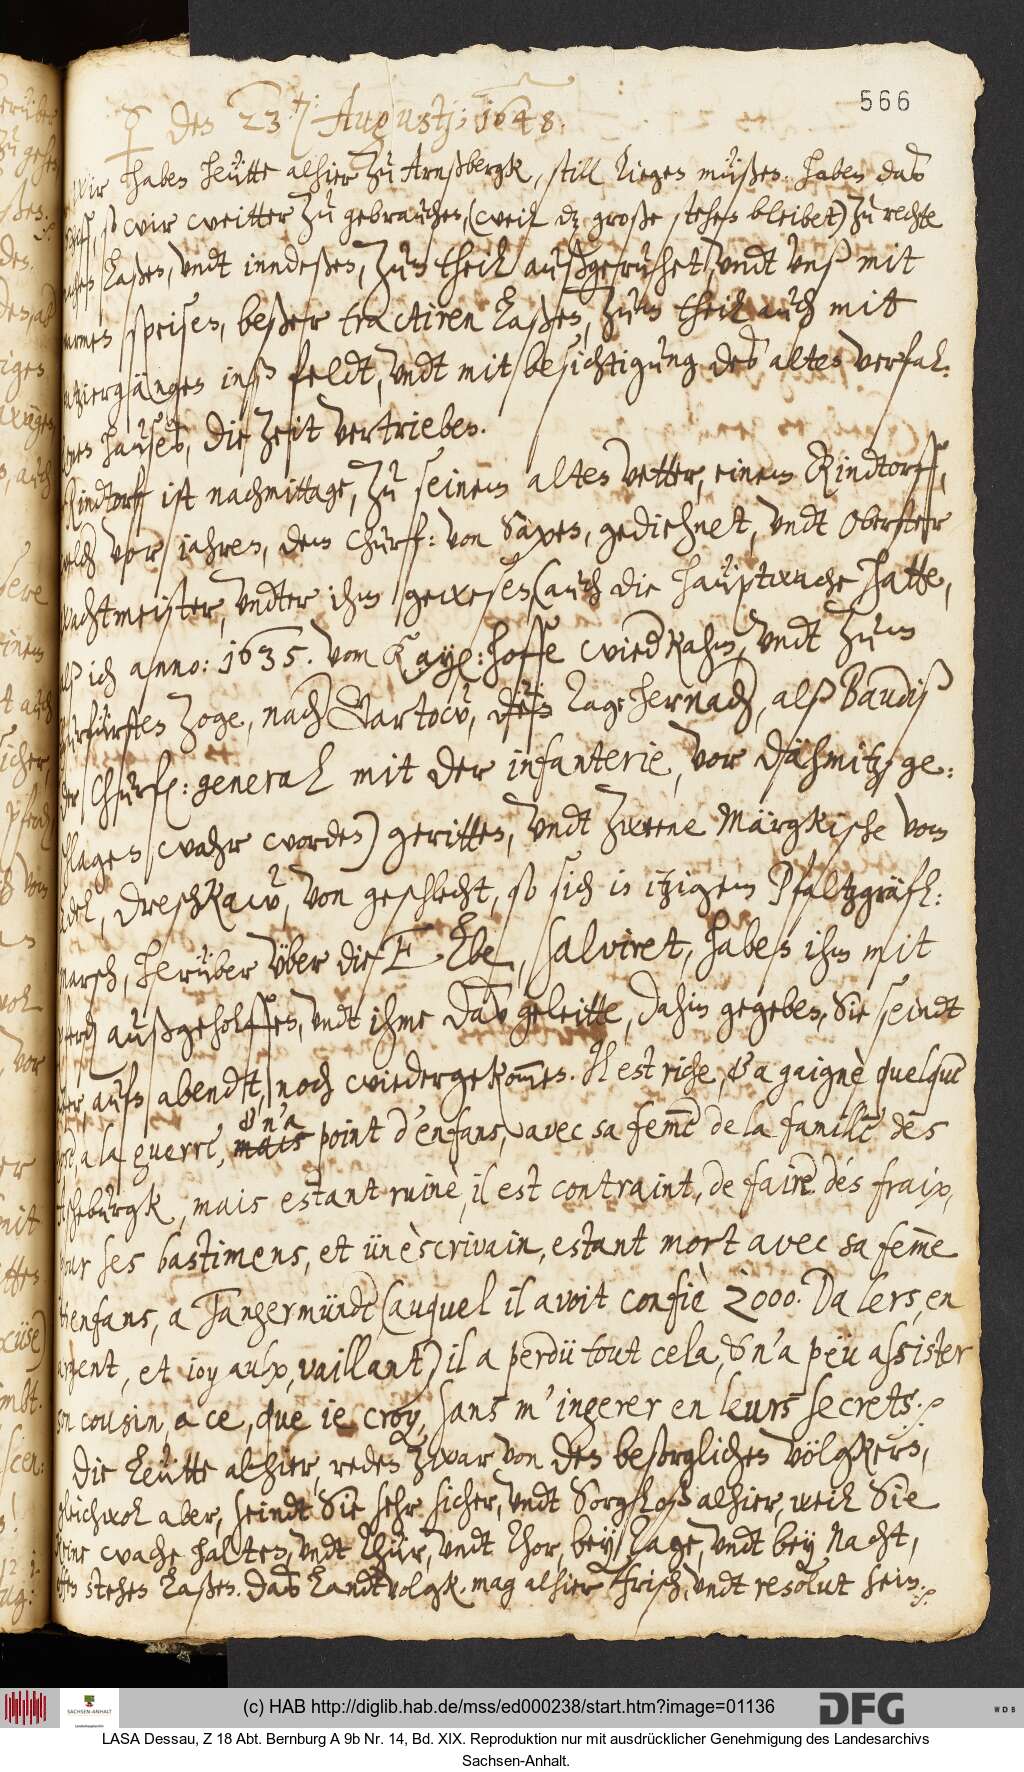 566
☿ den 23. Augustj; 1648.
Wir haben heütte alhier zu Arnßbergk, still liegen müßen. haben das
schiff, so wir weitter zu gebrauchen, (weil dz große stehen bleibet) zu rechte
machen laßen, vndt inndeßen, zum theil außgeruhet, vndt vnß mit
warmen speisen, beßer tractiren laßen, zum theil auch mit
spatziergängen inß feldt, vndt mit besichtigung des alten verfal-
lenen hauses, die zeit vertrieben.
Rindtorff ist nachmittage, zu seinem alten vetter, einem Rindtorff,
welch vor jahren, dem Churf: von Saxen, gedichnet, vndt Oberster
wachtmeister, vndter ihm gewesen (auch die hauptwache hatte,
alß ich anno: 1635. vom Kayß: hoffe wied kahm, vndt zum
Churfürsten zoge, nach Vartow, dieß lag hernach, alß Baudiß
der Churf: general mit der infanterie, vor Dähmitz, ge-
schlagen wahr worden) geritten, vndt zweene Märgkische vom
Adel, Dreschkaw, von geschlecht, so sich in itzigem Pfaltzgräfl:
marsch, herüber über die E Elbe, salviret, haben ihm mit
pferd außgeholffen, vndt ihme das geleitte, dahin gegeben, Sie seindt
aber, aufn abendt, noch wiedergekommen. Il est riche, & a gaignè quelque
chose, a la guerre, mais & n'a point d'enfans, avec sa feme de la famille des
Ascheburgk, mais estant ruinè, il est contraint, de faire des fraix,
pour ses bastimens, et ün èscrivain, estant mort avec sa feme
et enfans, a Tangermünde (auquel il avoit confiè 2000. Dalers, en
argent, et ioyaulx, vaillant) il a perdü tout cela, & n'a peü assister
son cousin, a ce, que ie croy, sans m'ingerer en leurs secrets.
Die leütte alhier, reden zwar von den besorglichen völgkern,
gleichwol aber, seindt Sie sehr sicher, vndt Sorgloß alhier, weil Sie
keine wache halten, vndt thür, vndt thor, bey tage, vndt bey Nacht,
offen stehen laßen. Das Landtvolgk, mag alhier frisch, vndt resolut sein.
(c) HAB http://diglib.hab.de/mss/ed000238/start.htm?image=01136
SACHSEN-ANHALT
DFG
WDB
LASA Dessau, Z 18 Abt. Bernburg A 9b Nr. 14, Bd. XIX. Reproduktion nur mit ausdrücklicher Genehmigung des Landesarchivs
Sachsen-Anhalt.